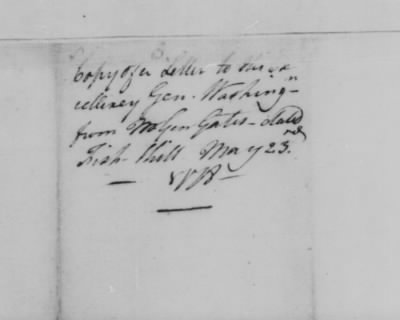 Copy of a Letter to his ex
cellency Gen. Washingn
from M Gen Gates - dated
Fish-Kill May 23rd
1778